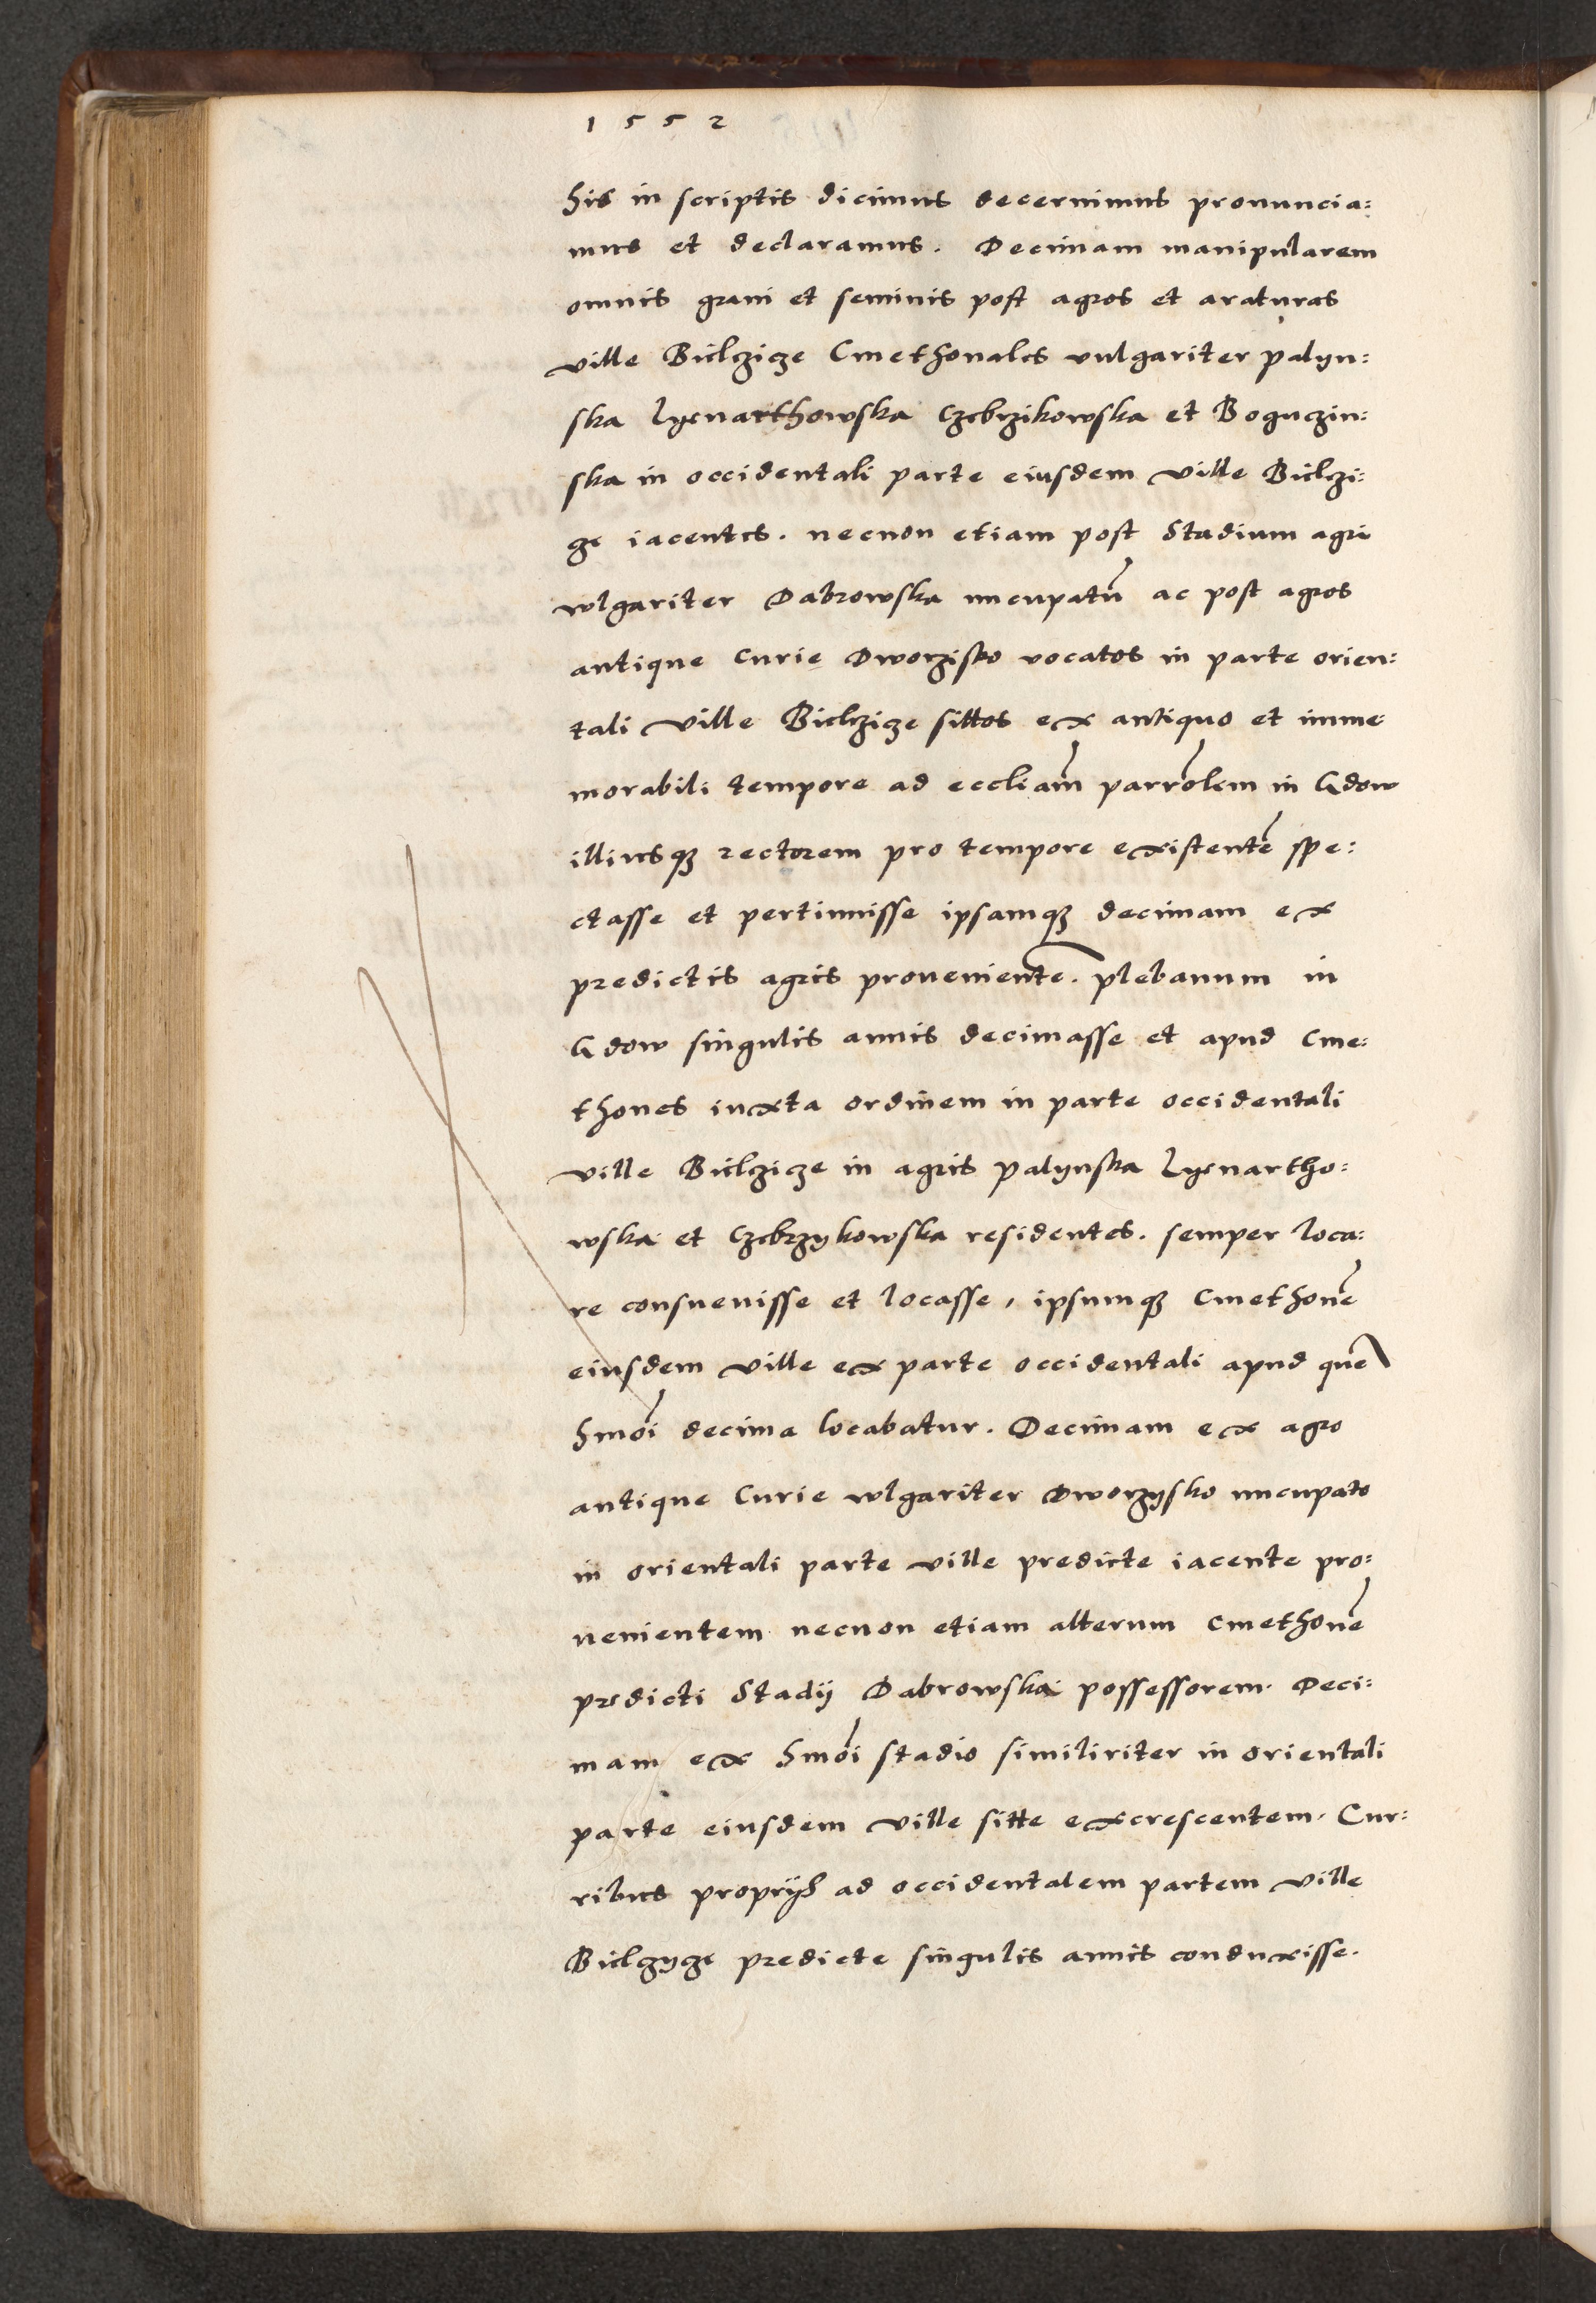 1552
his in scriptis dicimus decernimus pronuncia:
mus et declaramus. Decimam manipularem
omnis grani et seminis post agros et araturas
ville Bielczicze Cmethonales vulgariter palyn:
ska Lyenarthowska Czebrzikowska et Boguczin:
ska in occidentali parte eiusdem ville Bielczi:
cze iacentes. necnon etiam post Stadium agri
wlgariter Dabrowska nncupatũ ac post agros
antique curie Dworzisko vocatos in parte orien:
tali ville Bielczicze sittos ex antiquo et imme
morabili tempore ad eccliam̃ parrõlem in Gdow
illiusqȝ rectorem pro tempore existentẽ spe:
ctasse et pertinuisse ipsamqȝ decimam ex
predictis agris proveniente͂. plebanum in
Gdow singulis annis decimasse et apud Cme:
thones iuxta ordinem in parte occidentali
ville Bielczicze in agris palynska Lyenartho:
wska et Czebrzykowska residentes. semper loca:
re consuevisse et locasse, ipsumqȝ Cmethonẽ
eiusdem ville ex parte occidentali apud quẽ
hmõi decima locabatur. Decimam ex agro
antique Curie wlgariter Dworzysko nncupato
in orientali parte ville predicte iacente pro:
uenientem necnon etiam alterum Cmethonẽ
predicti Stadij Dabrowska possessorem. Deci:
mam ex hmõi stadio similiriter in orientali
parte eiusdem ville sitte excrescentem. Cur:
ribus proprijs ad occidentalem partem ville
Bielczycze predicte singulis annis conduxisse.